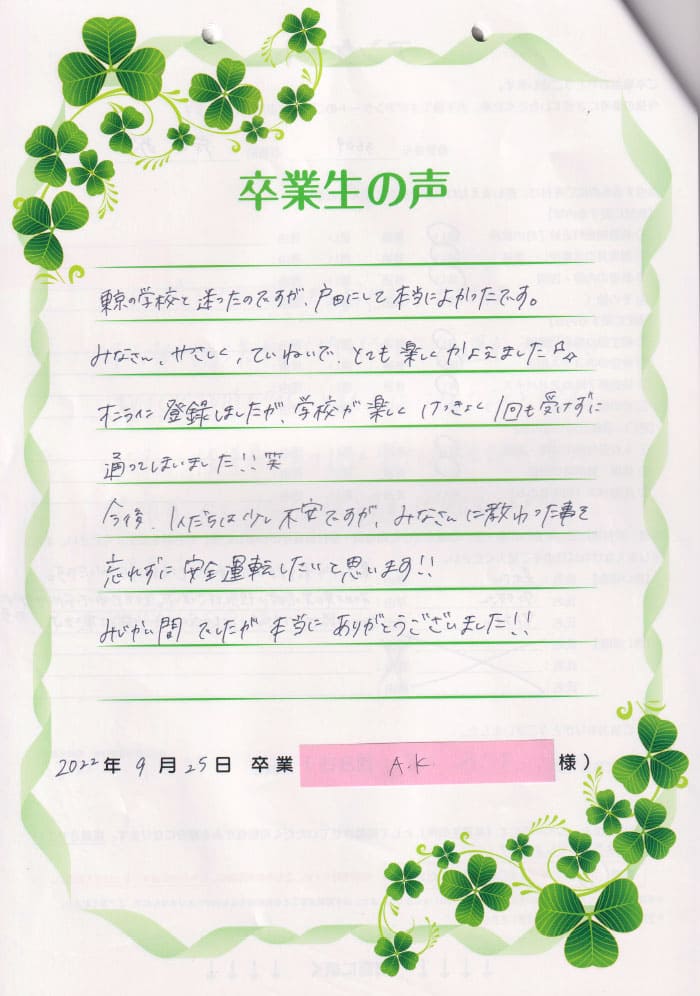 卒業生の声
東京の学校と迷ったのですが、戸田にして本当によかったです。
みなさん、やさしく、ていねいで、とても楽しくかよえました♪☆
オンラインに登録しましたが、学校が楽しくけっきょく1回も受けずに
通ってしまいました!!笑
今後、1人だちは少し不安ですが、みなさんに教わった事を
忘れずに安全運転したいと思います!!
みじかい間でしたが本当にありがとうございました!!
2022年9月25日 卒業 A.K 様)